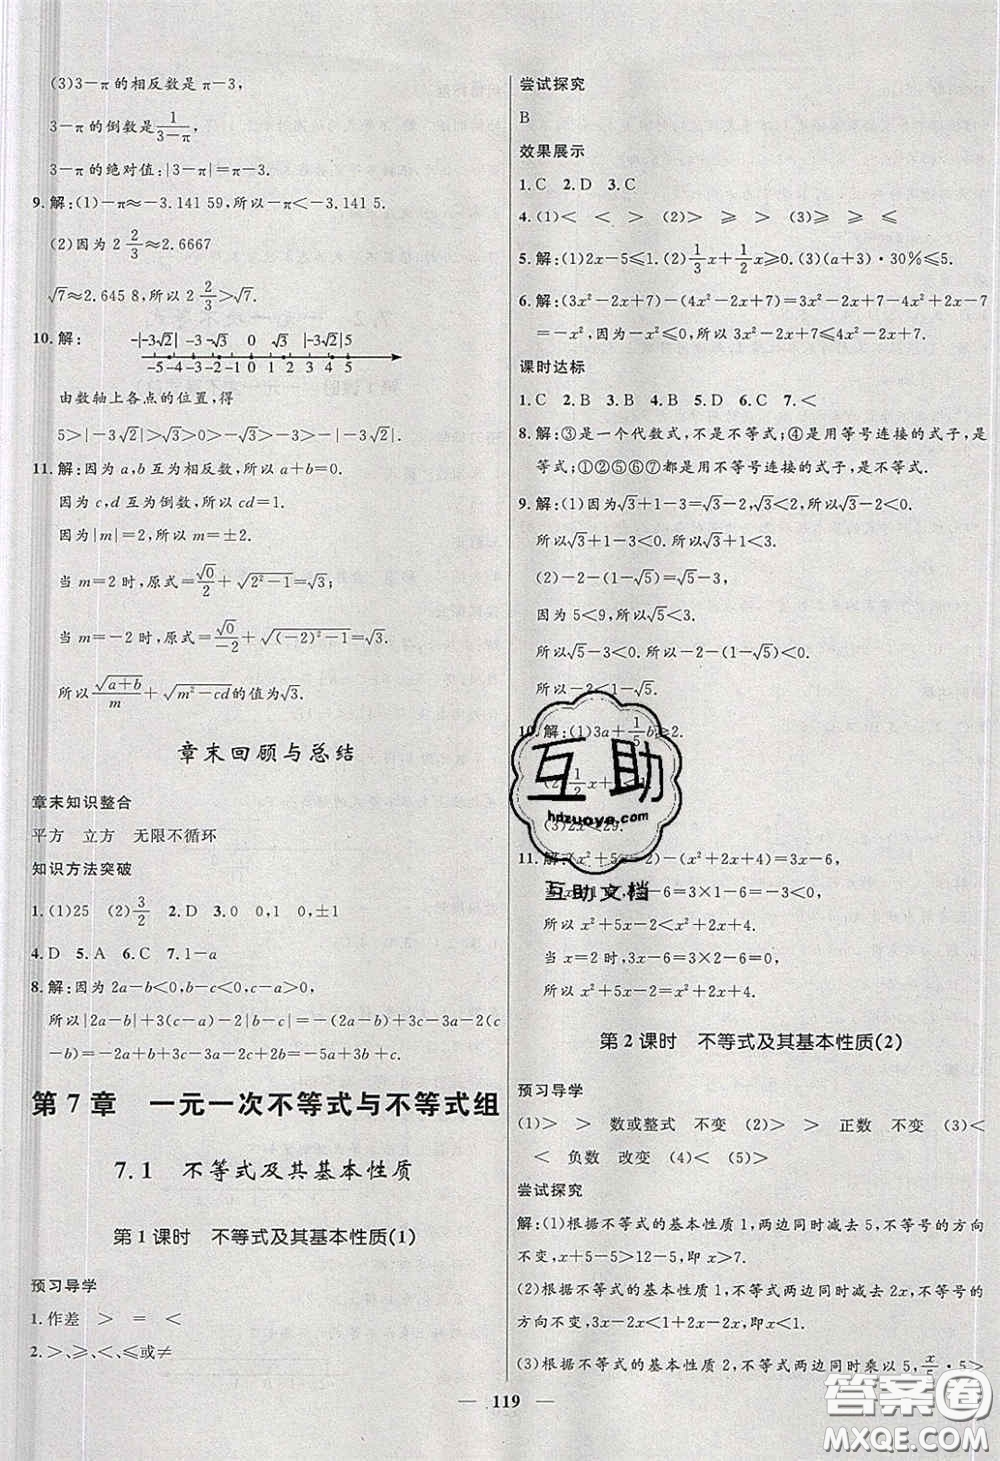 (3)3－π的相反数是π－3，
3－π的倒数是1/(3－π)，
3－π的绝对值：|3－π|＝π－3.
9.解：(1)－π≈－3.141 59，所以－π＜－3.141 5.
(2)因为2 2/3≈2.6667
√7≈2.645 8，所以2 2/3＞√7.
10.解：
－|－3√2| －3 －√3 0 √3 |－3√2| 5
－5－4－3－2－1 0 1 2 3 4 5
由数轴上各点的位置，得
5＞|－3√2|＞√3＞0＞－√3＞－3＞－|－3√2|.
11.解：因为a，b互为相反数，所以a＋b＝0.
因为c，d互为倒数，所以cd＝1.
因为|m|＝2，所以m＝±2.
当m＝2时，原式＝√0/2＋√(2²－1)＝√3；
当m＝－2时，原式＝√0/－2＋√((－2)²－1)＝√3.
所以√(a＋b)/m＋√(m²－cd)的值为√3.
章末回顾与总结
章末知识整合
平方 立方 无限不循环
知识方法突破
1.(1)25 (2)3/2 2.D 3.0 0，1 0，±1
4.D 5.A 6.C 7.1－a
8.解：因为2a－b＜0，b－c＜0，c－a＞0，
所以|2a－b|＋3(c－a)－2|b－c|＝－(2a－b)＋3(c－a)－2(c
－b)＝－2a＋b＋3c－3a－2c＋2b＝－5a＋3b＋c.
第7章 一元一次不等式与不等式组
7.1 不等式及其基本性质
第1课时 不等式及其基本性质(1)
预习导学
1.作差 ＞ ＝ ＜
2.＞、≥、＜、≤或≠
尝试探究
B
效果展示
1.C 2.D 3.C
4.(1)＜ ＜ ＞ (2)＞ ≥ ＞ (3)≥ ≥ ≤
5.解：(1)2x－5≤1.(2)1/3x＋1/2x≥0.(3)(a＋3)·30%≤5.
6.解：(3x²－2x＋7)－(4x²－2x＋7)＝3x²－2x＋7－4x²＋2x－7
＝－x²，因为－x²≤0，所以3x²－2x＋7≤4x²－2x＋7.
课时达标
1.C 2.B 3.B 4.B 5.D 6.C 7.＜
8.解：③是一个代数式，不是不等式；④是用等号连接的式子，是
等式；①②⑤⑥⑦都是用不等号连接的式子，是不等式.
9.解：(1)因为√3＋1－3＝√3－2，√3＜2，所以√3－2＜0.
所以√3＋1－3＜0.所以√3＋1＜3.
(2)－2－(1－√5)＝√5－3，
因为5＜9，所以√5＜3.
所以√5－3＜0，所以－2－(1－√5)＜0.
所以－2＜1－√5.
10.解：(1)3a＋1/5b≥2.
(2)1/2x＋
(3)2x＜29.
11.解：(x²＋5x－2)－(x²＋2x＋4)＝3x－6，
当x＝1时，3x－6＝3×1－6＝－3＜0，
所以x²＋5x－2＜x²＋2x＋4.
当x＝2时，3x－6＝3×2－6＝0，
所以x²＋5x－2＝x²＋2x＋4.
第2课时 不等式及其基本性质(2)
预习导学
(1)＞ ＞ 数或整式 不变 (2)＞ ＞ 正数 不变 (3)＜
＜ 负数 改变 (4)＜ (5)＞
尝试探究
解：(1)根据不等式的基本性质1，两边同时减去5，不等号的方向
不变，x＋5－5＞12－5，即x＞7.
(2)根据不等式的基本性质1，不等式两边同时减去2x，不等号的
方向不变，3x－2x＜1＋2x－2x，即x＜1.
(3)根据不等式的基本性质2，不等式两边同时乘以5，x/5·5＞
119
互助
hdzuoye.com
互助文档
答案圈
MXQE.COM